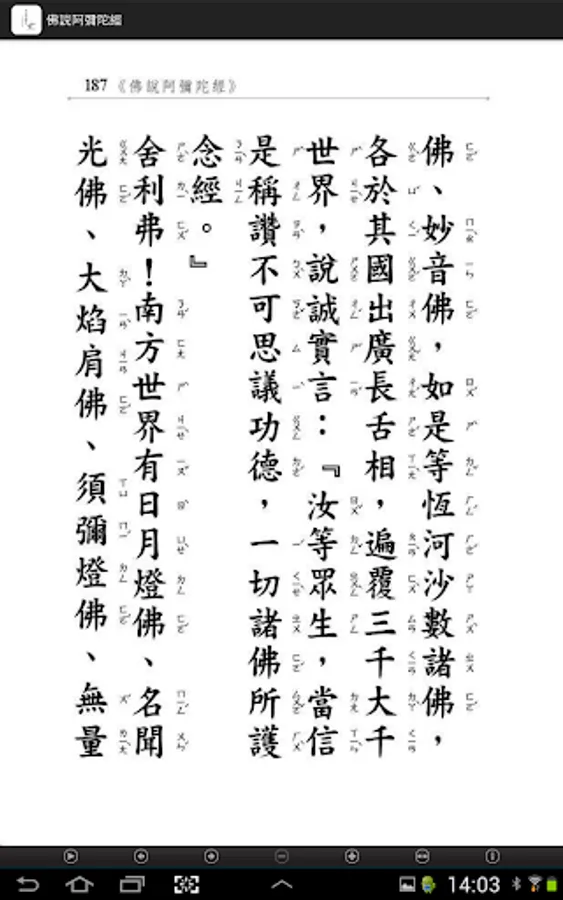 佛說阿彌陀經
187《佛說阿彌陀經》
佛、妙音佛，如是等恆河沙數諸佛，
各於其國出廣長舌相，遍覆三千大千
世界，說誠實言：『汝等眾生，當信
是稱讚不可思議功德，一切諸佛所護
念經。』
舍利弗！南方世界有日月燈佛、名聞
光佛、大焰肩佛、須彌燈佛、無量
14:03